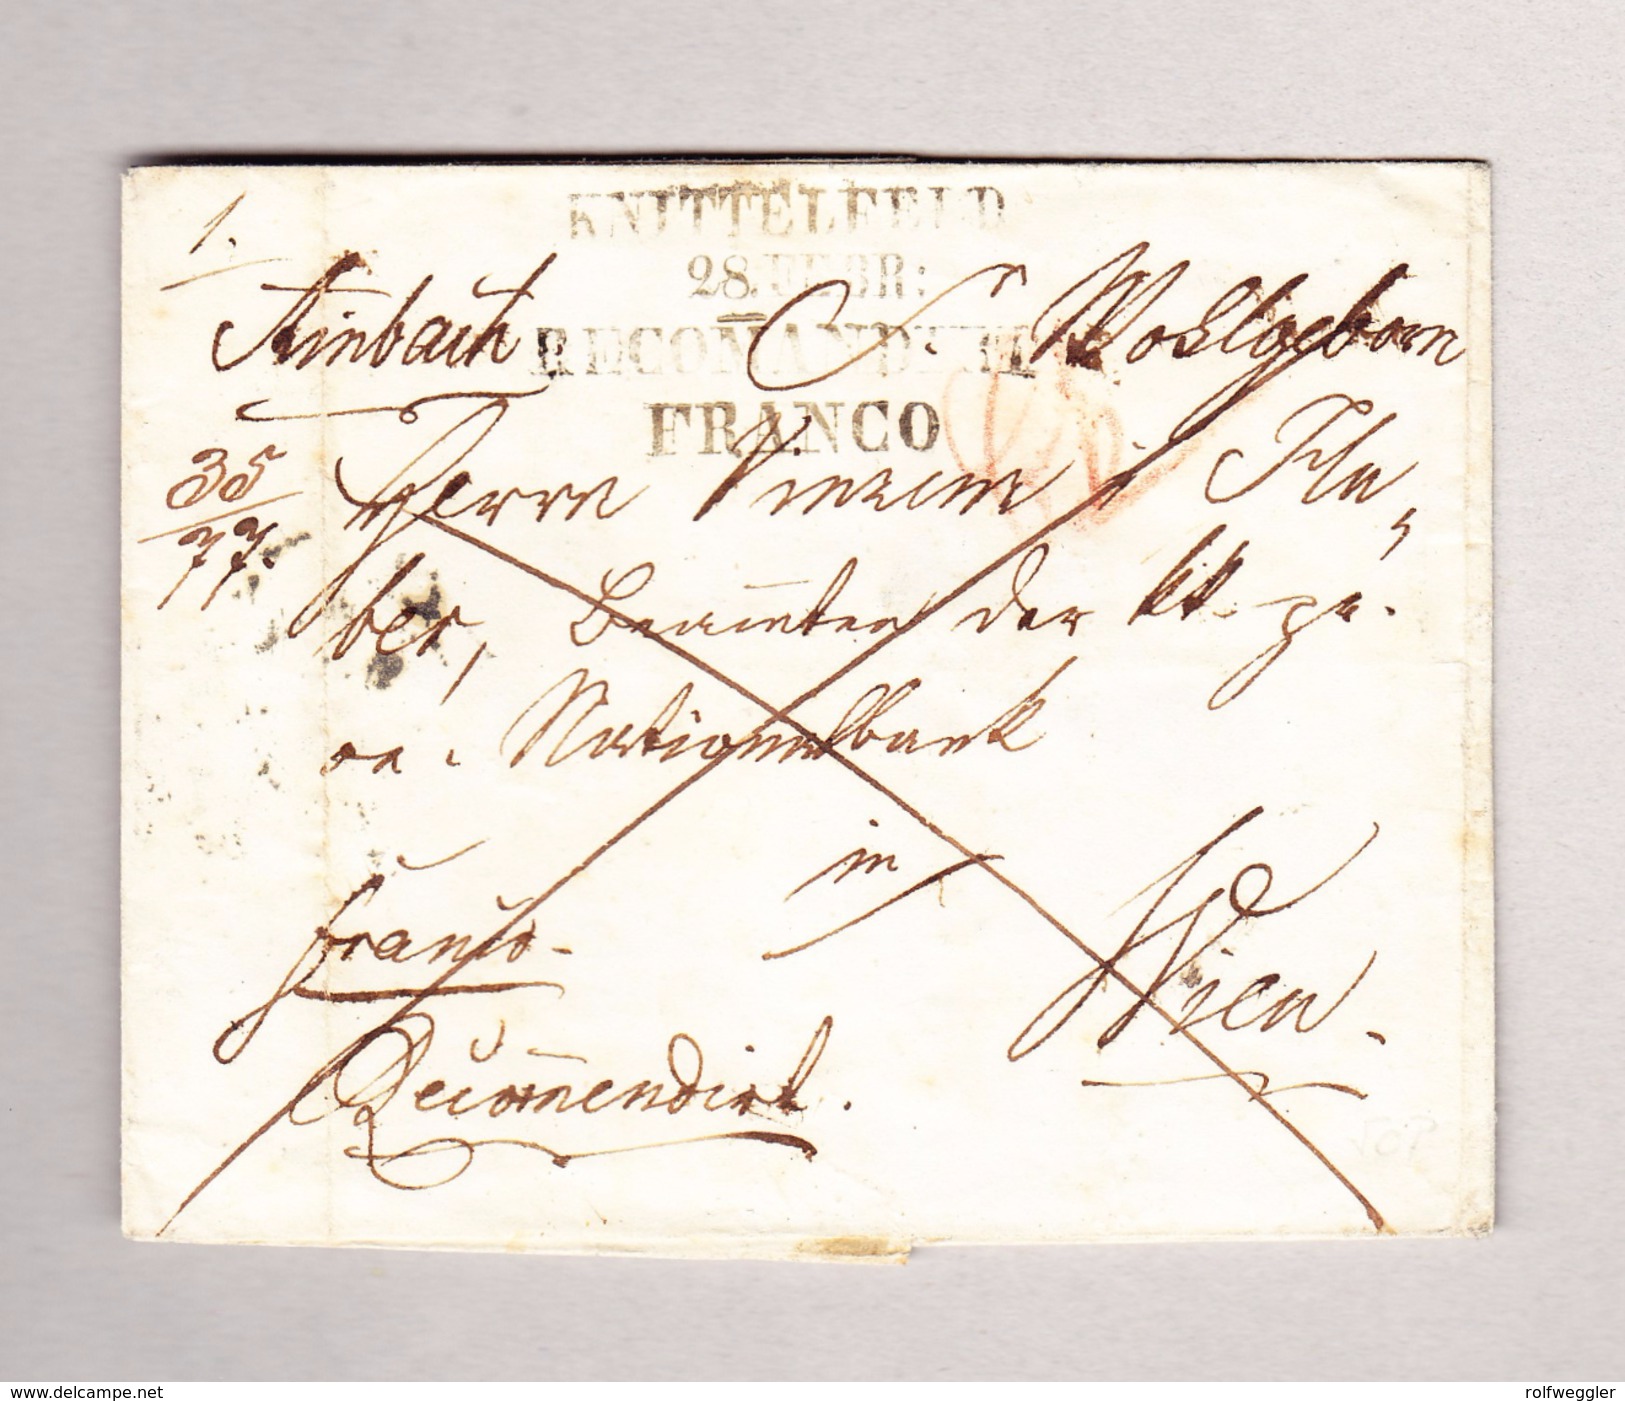 1.
KNITTELFELD
28. FEBR:
RECOM̄ANDIRT
FRANCO
Ainbach Sr Wohlgeborn
35
77.
Herrn Vinzenz Hu„
ber, Beam̄ten der kk. pr.
oe. Nationalbank
in
Wien.
franco.
Recom̄endirt.
www.delcampe.net
rolfweggler